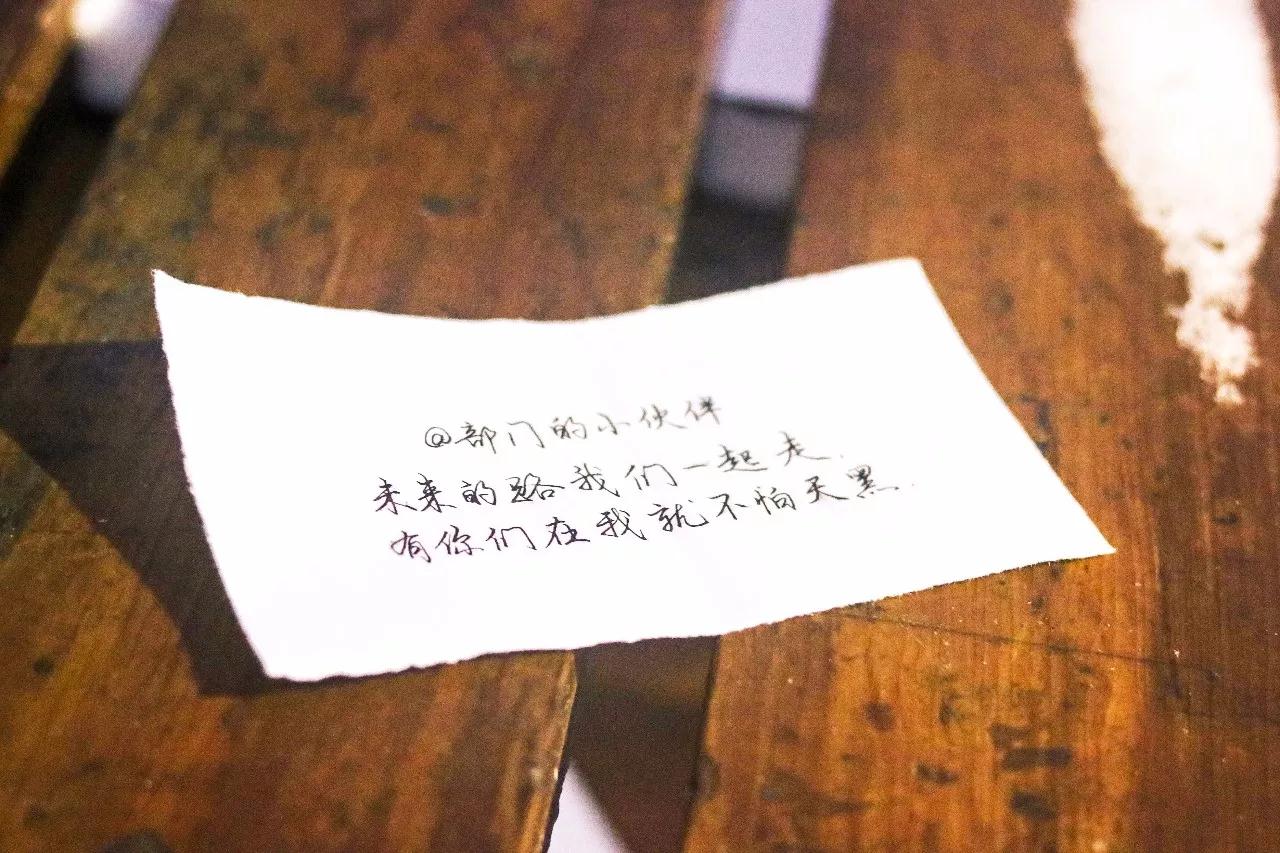 @部门的小伙伴
未来的路我们一起走.
有你们在我就不怕天黑.